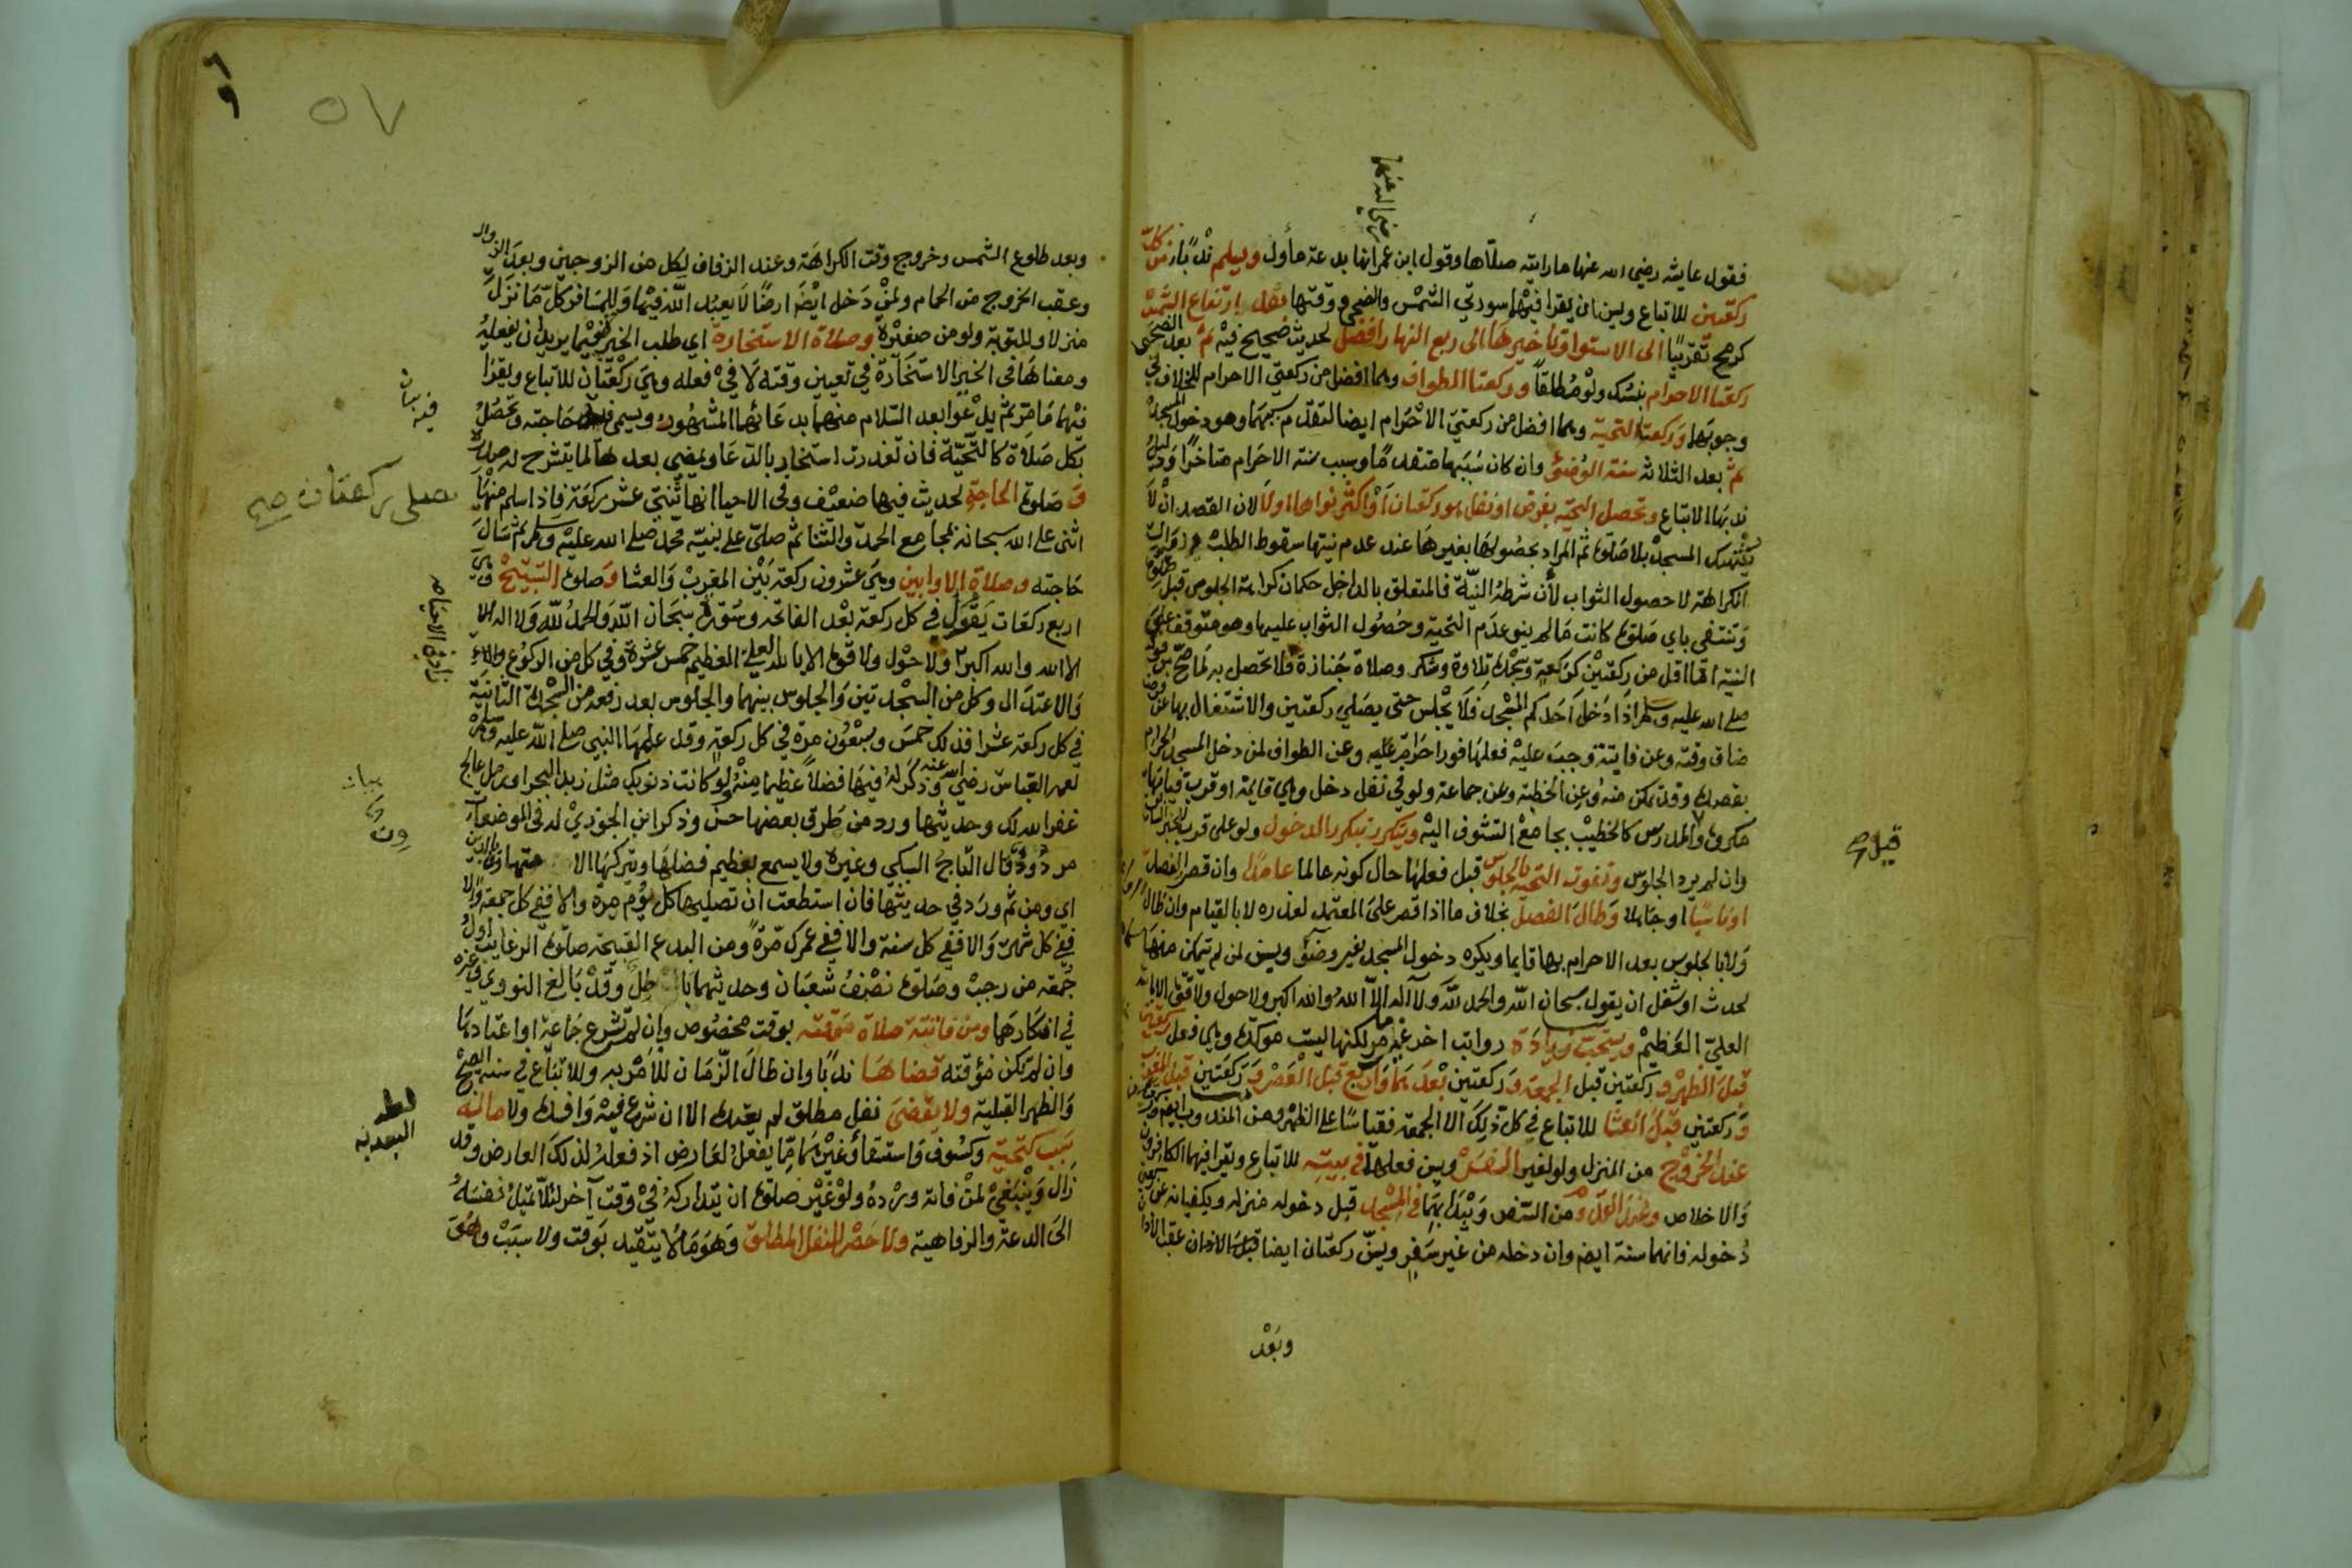 رضي الله عنهما
فقول عايشه رضي الله عنها ما رايته صلاها وقول ابن عمر انها بدعة مأول ويسلم ندبًا من كل
ركعتين للاتباع ويسن ان يقرا فيهما سورتي الشمْس والضحى ووقتها من ارتفاع الشمس
كرمح تقريبًا الى الاستوا وتاخيرها الى ربع النهار افضل لحديث صحيح فيه ثم بعد الضحى
ركعتا الاحرام بنسك ولوْ مُطلقاً وركعتا الطواف وهما افضل من ركعتي الاحرام للخلاف في
وجوبهما وركعتا التحية وهما افضل من ركعتي الاحْرام ايضا لتقدم سببهما وهو دخول المسجد
ثم بعد الثلاثه سنة الوُضؤ وان كان سَبَبها متقدمًا وسبب سنة الاحرام متاخرًا ودليل
ندبها الاتباع وتحصل التحيه بفرض او نفل هو ركعتان أوْ اكثر نواها اولا لان القصد انْ لا
يُنْتهك المسجد بلا صَلوة ثم المراد بحصُولها بغيرها عند عدم نيتها سقوط الطلب وزوال
الكراهة لا حصول الثواب لأن شرطهُ النيّة فالمتعلق بالداخل حكمان كراهة الجلوس قبل صلوة
وَتنتفى باي صَلوة كانت مَا لم ينو عدَم التحية وحصُول الثواب عليها وهو متوقف على
النية اما اقل من ركعتيْن كركعةٍ وسجْدة تلاوة وشكر وصلاة جَنازة فلا تحصل به لما صحّ من قوله
صلى الله عليه وسلم اذا دَخل اَحَدكم المسْجد فَلا يجْلس حتى يصَلي ركعتين والاشتغال بها عن فرض
ضاق وقته وعن فايتة وجبَ عليْه فعلها فورا حَرام عليه وعن الطواف لمن دخل المسجد الحرام
بقصده وقد تمكن منه وعن الخطبة وعن جماعة ولو في نفل دخل وهي قايمة او قرب قيامها
مكروه والمدرس كالخطيْب بجامعْ التشوف اليْه وتتكرر بتكرر الدخول ولو على قرب للخبر السابق
وان لم يرد الجلوس وتفوت التحيه بالجلوس قبل فعلها حال كونه عالما عامدًا وان قصر الفصل
او ناسيًا او جاهلا وَطال الفصل بخلاف ما اذا قصر على المعتمد لعذره لا بالقيام وان طال
وَلا بالجلوس بعد الاحرام بها قايما ويكره دخول المسجد بغير وضؤ ويسن لمن لم يتمكن منها
لحدث او شغل ان يقول سبحان الله والحمد لله وَلا اله الا الله والله اكبر ولا حول ولا قوة الا بالله
العليّ العَظيمْ ويستحب زيادة رواتب اخر غير مامر لكنها ليست موكدة وهي فعل ركعتين
قبل الظهرْ وركعتين قبل الجمعة وَركعتين بعْدهما وأربع قبل العَصْر وَركعَتين قبل المغرب
وَركعتين قبل العشا للاتباع في كل ذلك الا الجمعه فقياسًا على الظهر ومن المندوب
عند الخروْج من المنزل ولو لغير السفرْ ويسن فعلها في بيته للاتباع ويقرا فيهما الكافرون
وَالاخلاص وعند القدوْم من السّفر وَيبْدا بهما في المسْجد قبل دخوله منزله ويكفيانه عن ركعتي
دُخوله فانهما سنة ايضٍ وان دخله من غير سَفر ويسن ركعتان ايضا قبل الاذان عقب الاذان
وبَعْد
قيل
٥٧
وبعد طلوع الشمس وخروج وقت الكراهة وعند الزفاف لكل من الزوجين وبعدَ الزوال
وعقب الخروج من الحمام ولمنْ دَخل ايْضا ارضًا لا يعبد الله فيْها وَللمسَافر كلّ مَا نزَل
منزلا وللتوبة ولو من صغيْرة وصلاة الاستخارة اي طلب الخير فيْما يريد ان يفعله
ومعناها فى الخير الاستخَارة في تعيين وقته لَا فيْ فعله وهيَ ركْعتان للاتباع ويقرَا
فيْهما مَا مَر ثم يدْعوا بعد السّلام منهما بدعَائها المشهُور ويسمي فيه حَاجته وتحصُل
بكل صَلاة كالتّحيّة فان تعذرت استخار بالدعَا ويمضي بعدها لما ينشرح له صدره
وَصَلوة الحاجةِ لحديث فيها ضعْف وفي الاحيا انها ثنتي عشر ركعَة فاذا سلم منهَا
اثنى على الله سبحانه بمجامع الحمد والثنا ثم صلىّ على نبيّه محمد صلى الله عليْه وسلم ثم سَالَ
حَاجته وصلاة الاوابين وهيَ عشرون ركعة بَيْن المغربْ وَالعشا وَصلوة التسبيْح وهي
اربع ركعَات يَقول في كل ركعة بعْد الفاتحه وسُورة سبحَان الله وَالحمدُ لله وَلا اله الا
الا الله والله اكبر ولا حوْل ولا قوة الا بالله العليْ العظيم خمس عشرة وفي كل من الركوع
وَالاعتدَال وكل من السجْدتين وَالجلوس بينهما والجلوس بعد رفعه من السّجْدة الثانية
في كل ركعة عشرا فذلك خمسَ وسبْعُون مرة في كل ركعةٍ وقد علمهَا النبي صلى الله عليه وسلم
لعمه العباس رضي الله عنه وَذكرَ لهُ فيهَا فضلاً عظيما منْهُ لوْ كانت ذنوبك مثل زبد البحر او رمل عالج
غفر الله لك وحديثها ورد من طرق بعضها حسن وذكر ابن الجَوْزيْ له في الموضوعَات
مردُوْد قال التاجْ السبكي وغيره ولا يسمع بعظيم فضلهَا ويترُكهَا الا متهاون بالدين
اي ومن ثم ورَد في حديثها فان استطعت انْ تصليها كل يوْم مرة والا ففي كل جمعة والا
ففي كل شهر وَالا ففي كل سنة والا ففي عمرك مّرة ومن البدع القبيحة صلوة الرغايب اول
جُمعة من رجبْ وصَلوة نصْف شعبَان وحديثهما باطل وقدْ بَالغ النووي وغيره
في انكارهَا ومن فاتتة صلاة موقته بوقت مخصُوص وان لمْ تشرع جَماعة او اعتادهَا
وان لمْ تكن مؤقته قضاها ندبًا وان طالَ الزمَان للأمْر به وللاتباع في سنة الصبح
وَالظهر القبلية ولا يقضىَ نفل مطلق لم يعتده الا ان شرع فيْه وَافسده ولا ماله
سَبب كتحية وكسُوف وَاستسقا وَغيْرهما مما يفعلُ لعَارض اذ فعله لذلكَ العارض وقد
زَال وَينْبغيْ لمنْ فاته ورْدهُ ولوْ غيْر صَلوة ان يتداركهُ فيْ وقت آخر لئلا تميل نفسهُ
الىَ الدعة والرفاهية ولا حَصْر للنفل المطلق وَهوَ مَا لا يتقيد بَوقت ولا سبَبْ
صلى ركعتان صح